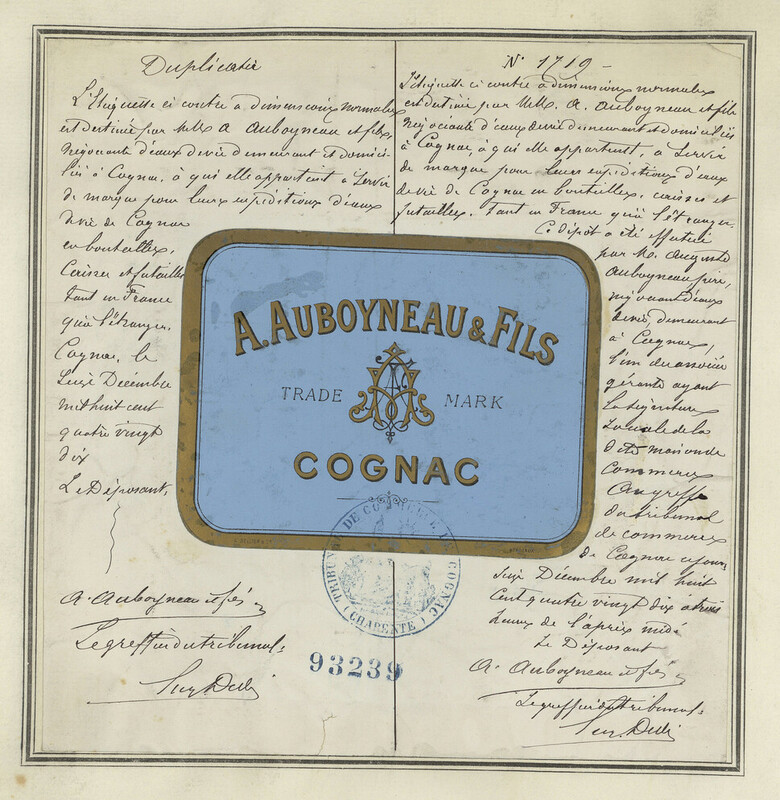 Duplicata
L'Etiquette ci contre à dimensions normales
est destinée par MM. A Auboyneau et fils,
négociants d'eaux de vie demeurant et domici-
liés à Cognac, à qui elle appartient à servir
de marque pour leurs expéditions d'eaux
de vie de Cognac
en bouteilles,
caisses et futailles
tant en France
qu'à l'étranger.
Cognac, le
Seize Décembre
mil huit cent
quatre vingt
dix
Le Déposant,
A. Auboyneau et fils
Le greffier du tribunal:
N° 1719 -
L'étiquette ci contre à dimensions normales
est destinée par MM. A. Auboyneau et fils
négociants d'eaux de vie demeurant et domiciliés
à Cognac, à qui elle appartient, à servir
de marque pour leurs expéditions d'eaux
de vie de Cognac en bouteilles, caisses et
futailles. tant en France qu'à l'étranger.
Ce dépôt a été effectué
par M. Auguste
Auboyneau père,
négociant d'eaux
de vie, demeurant
à Cognac,
l'un des associés
gérants ayant
la signature
sociale de la
dite maison de
commerce
au greffe
du tribunal
de commerce
de Cognac ce jour
seize Décembre mil huit
cent quatre vingt dix à trois
heures de l'après midi
Le Déposant
A. Auboyneau et fils
Le greffier du tribunal:
A. AUBOYNEAU & FILS
TRADE MARK
COGNAC
TRIBUNAL DE COMMERCE DE COGNAC
(CHARENTE)
93239